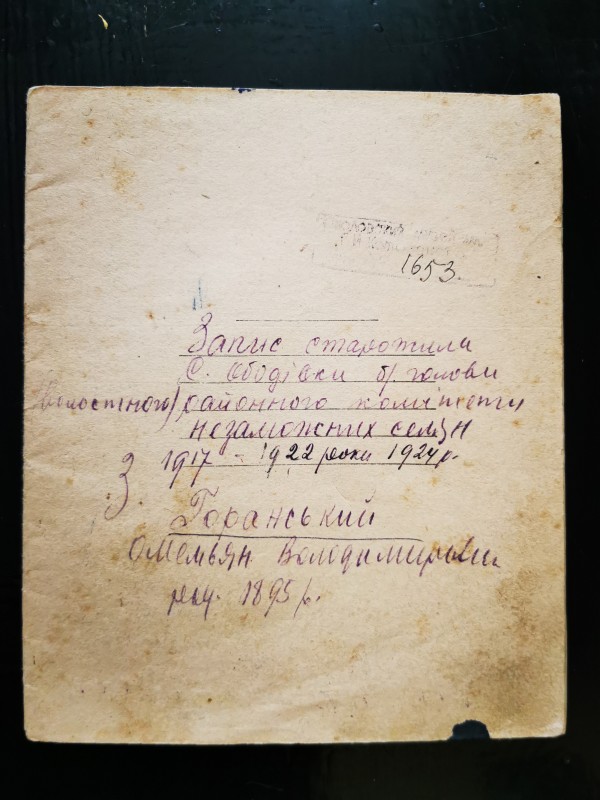 1653.
Запис старожила
С. Ободівки б/ голови
(волостного) районного комітету
незаможних селян
1917 – 1922 роки 1924 р.
З. Горанський
Омельян Володимирович
род. 1895 р.